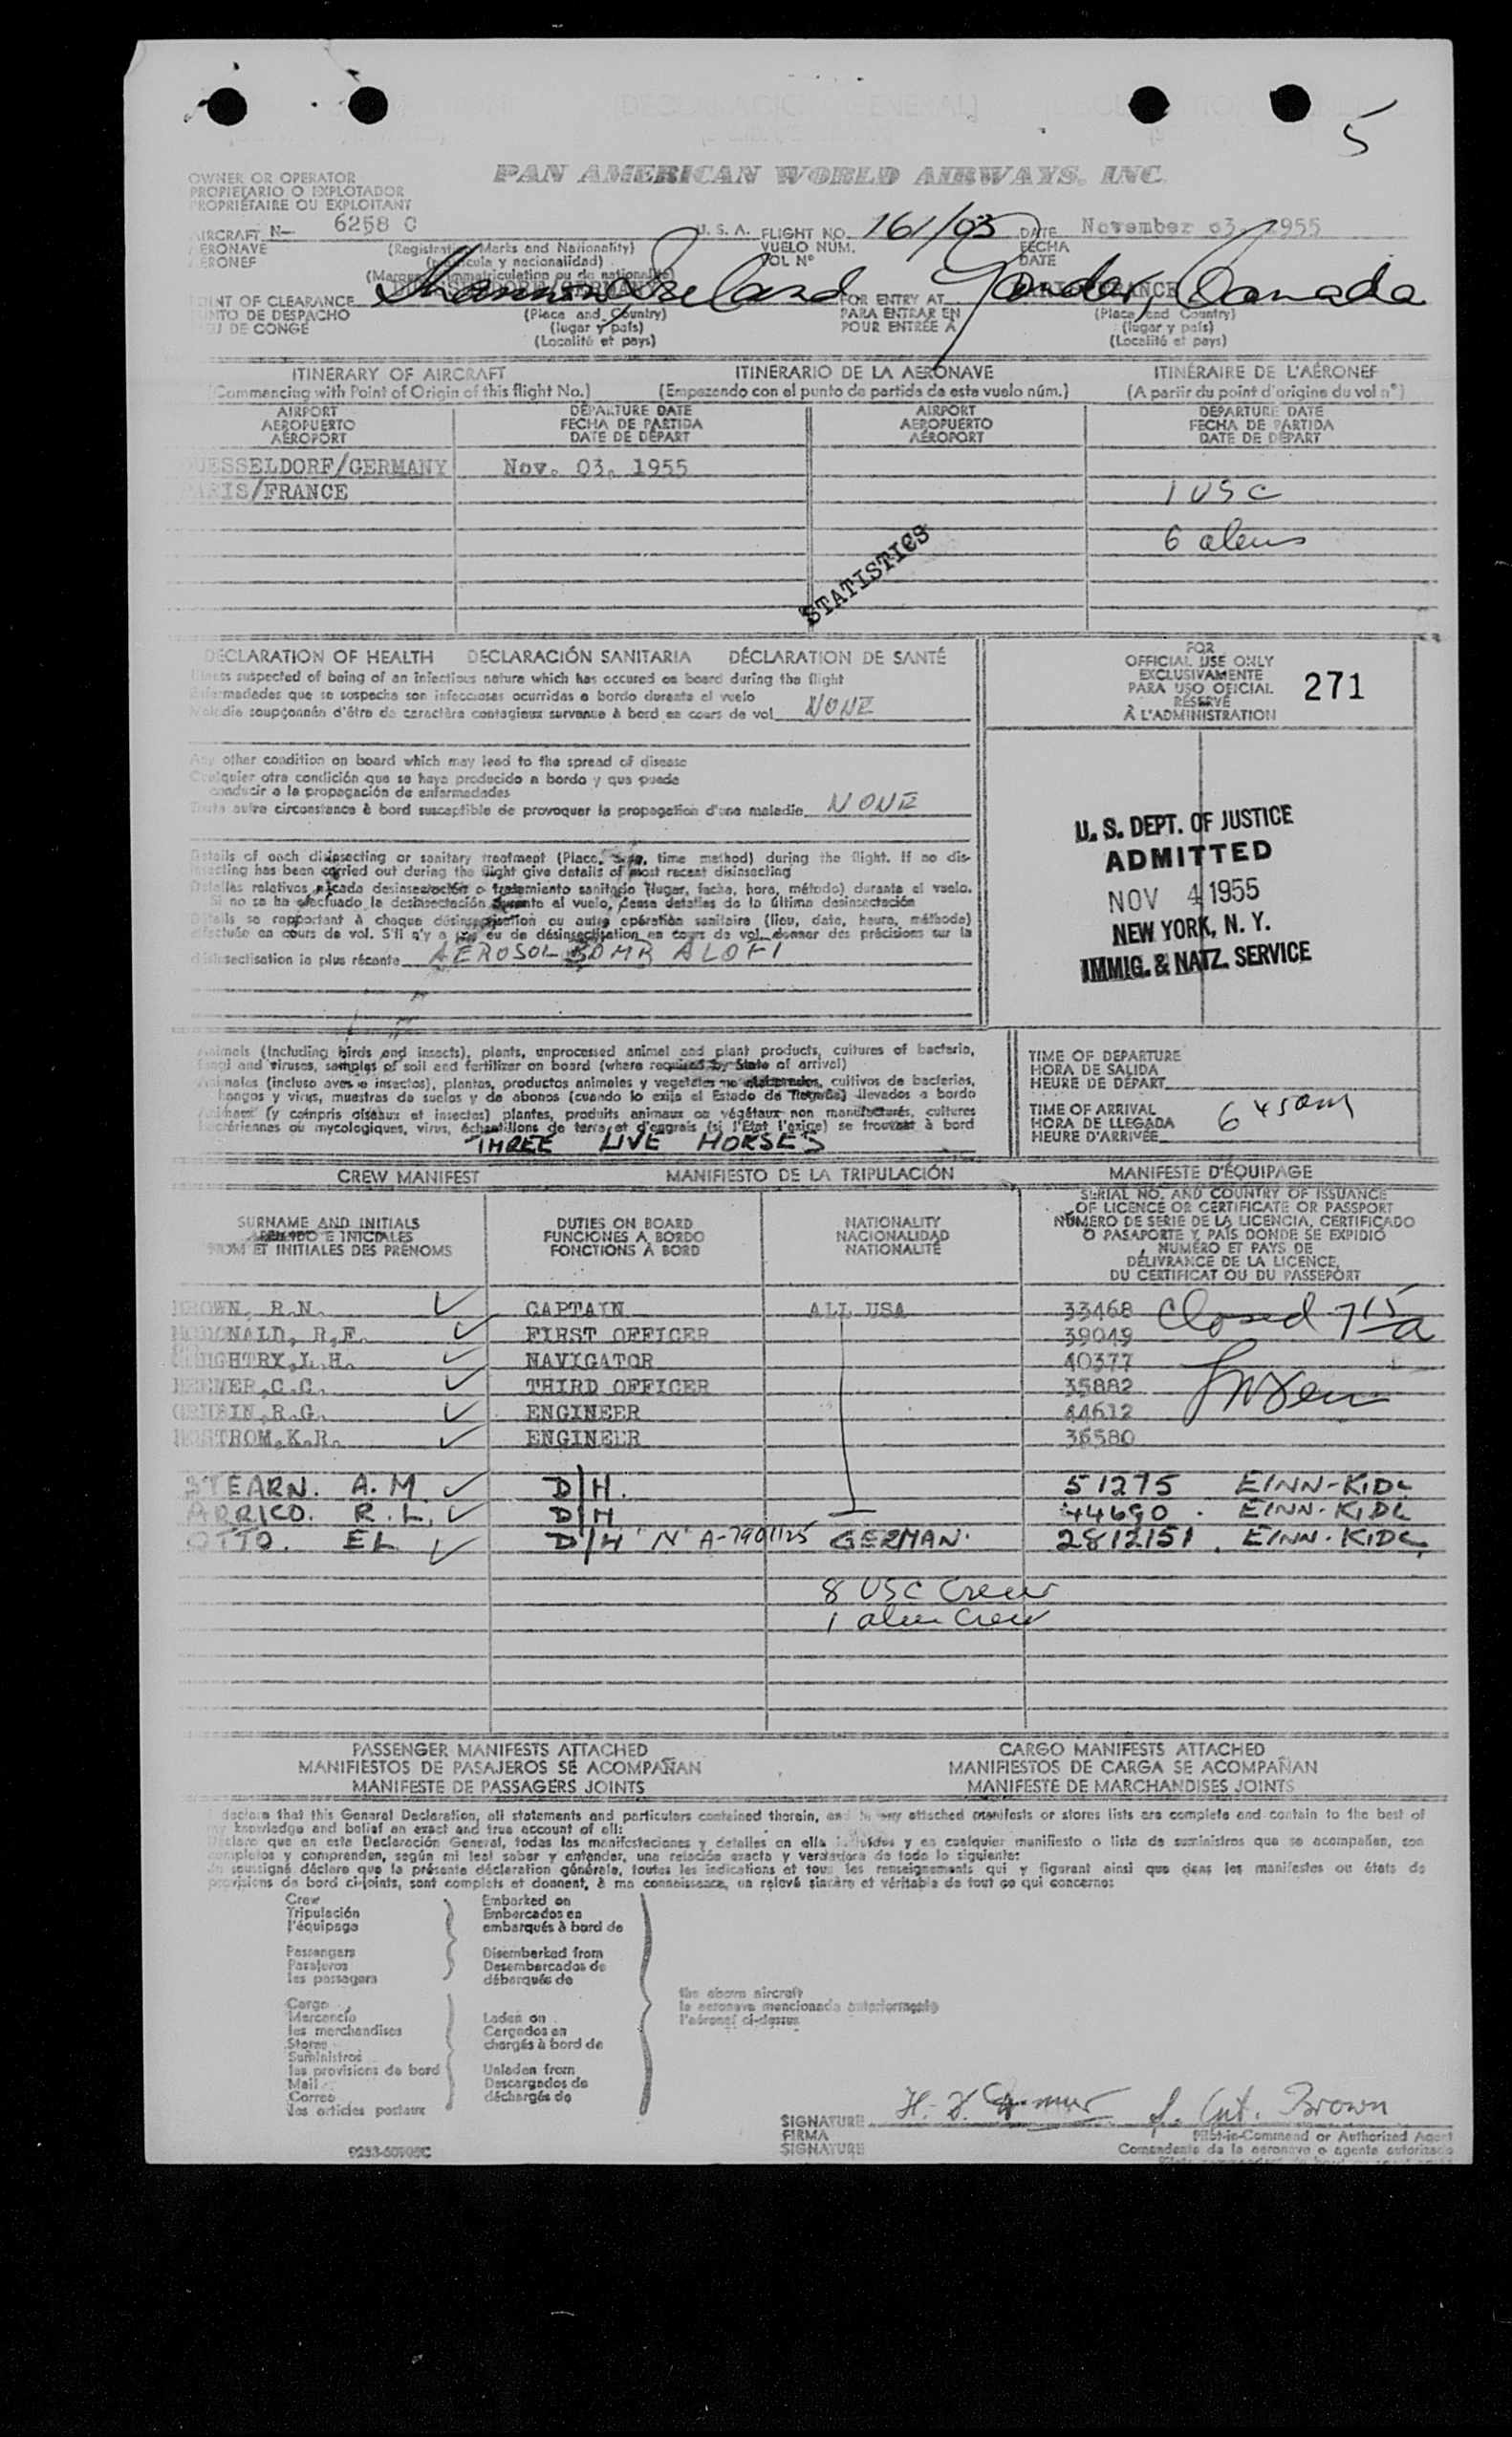 5
PAN AMERICAN WORLD AIRWAYS, INC.
OWNER OR OPERATOR
PROPIETARIO O EXPLOTADOR
PROPRIÉTAIRE OU EXPLOITANT
AIRCRAFT N— 6258 C U. S. A. FLIGHT NO. 161/03 DATE November 03, 1955
AERONAVE (Registration Marks and Nationality) VUELO NÚM. FECHA
AERONEF (matrícula y nacionalidad) VOL Nº DATE
(Marques d'immatriculation ou de nationalité)
POINT OF CLEARANCE Shannon Ireland FOR ENTRY AT Gander, Canada
PUNTO DE DESPACHO (Place and Country) PARA ENTRAR EN (Place and Country)
LIEU DE CONGÉ (lugar y país) POUR ENTRÉE À (lugar y país)
(Localité et pays) (Localité et pays)
ITINERARY OF AIRCRAFT ITINERARIO DE LA AERONAVE ITINÉRAIRE DE L'AÉRONEF
(Commencing with Point of Origin of this flight No.) (Empezando con el punto de partida de este vuelo núm.) (A partir du point d'origine du vol nº)
AIRPORT DEPARTURE DATE AIRPORT DEPARTURE DATE
AEROPUERTO FECHA DE PARTIDA AEROPUERTO FECHA DE PARTIDA
AÉROPORT DATE DE DÉPART AÉROPORT DATE DE DÉPART
DUESSELDORF/GERMANY Nov. 03, 1955
PARIS/FRANCE 1 USC
6 aliens
STATISTICS
DECLARATION OF HEALTH DECLARACIÓN SANITARIA DÉCLARATION DE SANTÉ
Illness suspected of being of an infectious nature which has occured on board during the flight
Enfermedades que se sospecha son infecciosas ocurridas a bordo durante el vuelo
Maladie soupçonnée d'être de caractère contagieux survenue à bord en cours de vol NONE
FOR
OFFICIAL USE ONLY
EXCLUSIVAMENTE
PARA USO OFICIAL
RÉSERVÉ
À L'ADMINISTRATION
271
Any other condition on board which may lead to the spread of disease
Cualquier otra condición que se haya producido a bordo y que puede
conducir a la propagación de enfermedades
Toute autre circonstance à bord susceptible de provoquer la propagation d'une maladie NONE
U. S. DEPT. OF JUSTICE
ADMITTED
NOV 4 1955
NEW YORK, N. Y.
IMMIG. & NATZ. SERVICE
Details of each disinsecting or sanitary treatment (Place, date, time method) during the flight. If no dis-
insecting has been carried out during the flight give details of most recent disinsecting
Detalles relativos a cada desinsectación o tratamiento sanitario (lugar, fecha, hora, método) durante el vuelo.
Si no se ha efectuado la desinsectación durante el vuelo, dense detalles de la última desinsectación
Détails se rapportant à chaque désinsectisation ou autre opération sanitaire (lieu, date, heure, méthode)
effectuée en cours de vol. S'il n'y a pas eu de désinsectisation en cours de vol donner des précisions sur la
disinsectisation la plus récente AEROSOL BOMB ALOFT
Animals (Including birds and insects), plants, unprocessed animal and plant products, cultures of bacteria,
fungi and viruses, samples of soil and fertilizer on board (where required by State of arrival)
Animales (incluso aves e insectos), plantas, productos animales y vegetales no elaborados, cultivos de bacterias,
hongos y virus, muestras de suelos y de abonos (cuando lo exija el Estado de llegada) llevados a bordo
Animaux (y compris oiseaux et insectes) plantes, produits animaux ou végétaux non manufacturés, cultures
bactériennes ou mycologiques, virus, échantillons de terre et d'engrais (si l'État l'exige) se trouvant à bord
THREE LIVE HORSES
TIME OF DEPARTURE
HORA DE SALIDA
HEURE DE DÉPART
TIME OF ARRIVAL
HORA DE LLEGADA
HEURE D'ARRIVÉE 6 45am
CREW MANIFEST MANIFIESTO DE LA TRIPULACIÓN MANIFESTE D'ÉQUIPAGE
SURNAME AND INITIALS
APELLIDO E INICIALES
NOM ET INITIALES DES PRÉNOMS
DUTIES ON BOARD
FUNCIONES A BORDO
FONCTIONS À BORD
NATIONALITY
NACIONALIDAD
NATIONALITÉ
SERIAL NO. AND COUNTRY OF ISSUANCE
OF LICENCE OR CERTIFICATE OR PASSPORT
NÚMERO DE SERIE DE LA LICENCIA, CERTIFICADO
O PASAPORTE Y PAÍS DONDE SE EXPIDIÓ
NUMÉRO ET PAYS DE
DÉLIVRANCE DE LA LICENCE,
DU CERTIFICAT OU DU PASSEPORT
BROWN, R.N. CAPTAIN ALL USA 33468 Closed 7 15 a
MCDONALD, R.F. FIRST OFFICER 39049
L.H. NAVIGATOR 40377
C.C. THIRD OFFICER 35882
R.G. ENGINEER 44612
K.R. ENGINEER 36580
STEARN. A.M. D/H. 51275 EINN-KIDL
ARRICO. R.L. D/H 44690 . EINN-KIDL
OTTO. EL D/H Nº A-7901125 GERMAN. 2812151 . EINN-KIDL
8 USC Crew
1 alien Crew
PASSENGER MANIFESTS ATTACHED CARGO MANIFESTS ATTACHED
MANIFIESTOS DE PASAJEROS SE ACOMPAÑAN MANIFIESTOS DE CARGA SE ACOMPAÑAN
MANIFESTE DE PASSAGERS JOINTS MANIFESTE DE MARCHANDISES JOINTS
I declare that this General Declaration, all statements and particulars contained therein, and in any attached manifests or stores lists are complete and contain to the best of
my knowledge and belief an exact and true account of all:
Declaro que en esta Declaración General, todas las manifestaciones y detalles en ella incluidos y en cualquier manifiesto o lista de suministros que se acompañen, son
completos y comprenden, según mi leal saber y entender, una relación exacta y verdadera de todo lo siguiente:
Je soussigné déclare que la présente déclaration générale, toutes les indications et tous les renseignements qui y figurent ainsi que dans les manifestes ou états de
provisions de bord ci-joints, sont complets et donnent, à ma connaissance, un relevé sincère et véritable de tout ce qui concerne:
Crew Embarked on
Tripulación Embarcados en
l'équipage embarqués à bord de
Passengers Disembarked from
Pasajeros Desembarcados de
les passagers débarqués de
the above aircraft
la aeronave mencionada anteriormente
l'aéronef ci-dessus
Cargo
Mercancía Laden on
les marchandises Cargados en
Stores chargés à bord de
Suministros
les provisions de bord Unladen from
Mail Descargados de
Correo déchargés de
les articles postaux
SIGNATURE f. Cpt. Brown
FIRMA Pilot-in-Command or Authorized Agent
SIGNATURE Comandante de la aeronave o agente autorizado